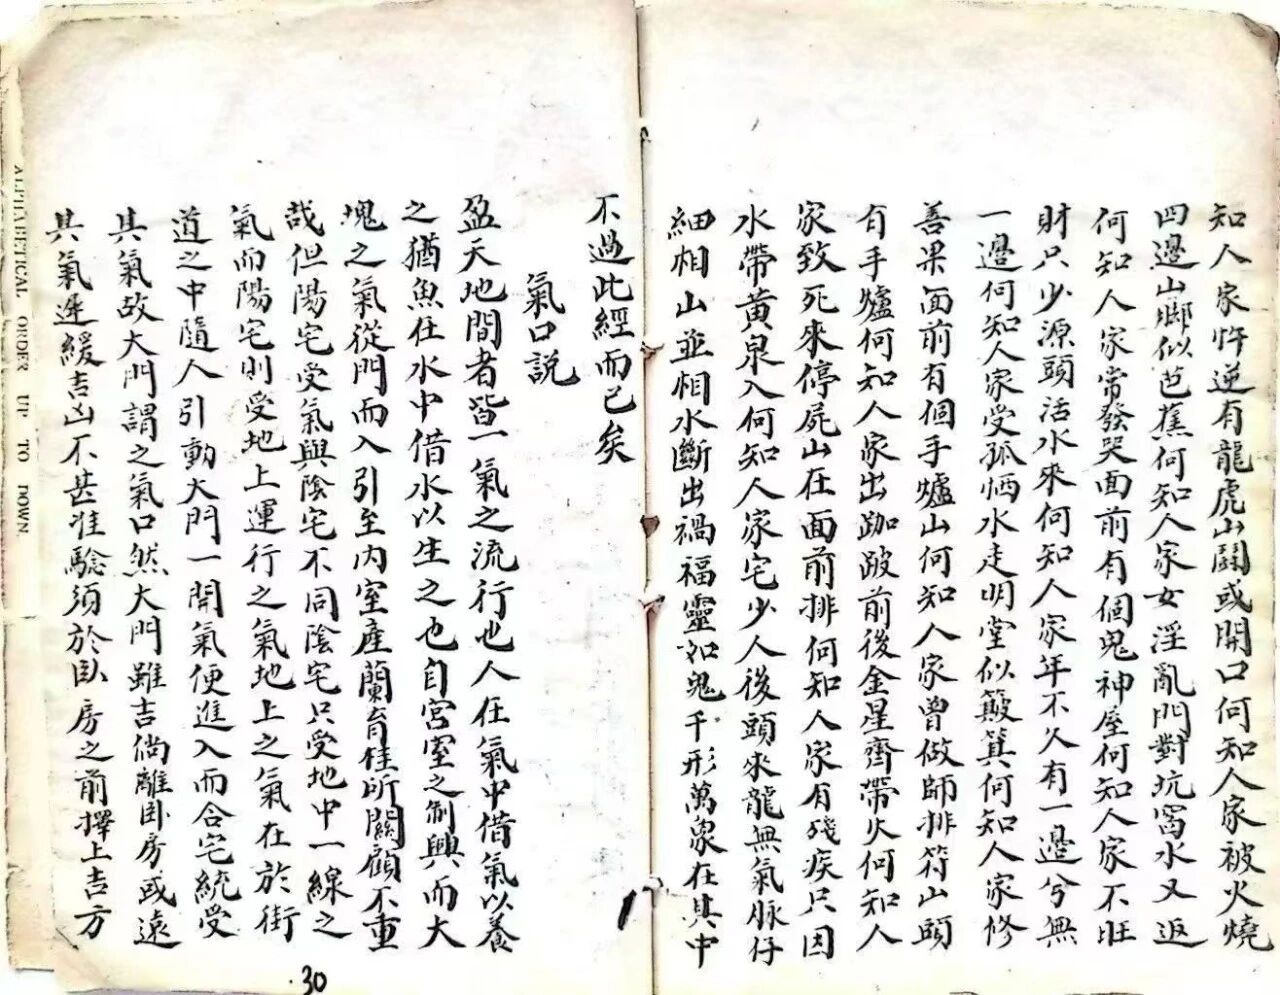 知人家忤逆有龍虎山鬭或開口何知人家被火燒
四邊山腳似芭蕉何知人家女淫亂門對坑窩水又返
何知人家常發哭面前有個鬼神屋何知人家不旺
財只少源頭活水來何知人家年不久有一邊兮無
一邊何知人家受孤恓水走明堂似簸箕何知人家修
善果面前有個手爐山何知人家曾做師排符山頭
有手爐何知人家出跏跛前後金星齊帶火何知人
家致死來停屍山在面前排何知人家有殘疾只因
水帶黃泉入何知人家宅少人後頭來龍無氣脉仔
細相山並相水斷出禍福靈如鬼千形萬象在其中
不過此經而已矣
氣口説
盈天地間者皆一氣之流行也人在氣中借氣以養
之猶魚在水中借水以生之也自宮室之制興而大
塊之氣從門而入引至内室產蘭育桂所關顧不重
哉但陽宅受氣與陰宅不同陰宅只受地中一線之
氣而陽宅則受地上運行之氣地上之氣在於街
道之中隨人引動大門一開氣便進入而合宅統受
其氣故大門謂之氣口然大門雖吉倘離卧房或遠
其氣遲緩吉凶不甚准驗須於卧房之前擇上吉方
30
ALPHABETICAL ORDER UP TO DOWN